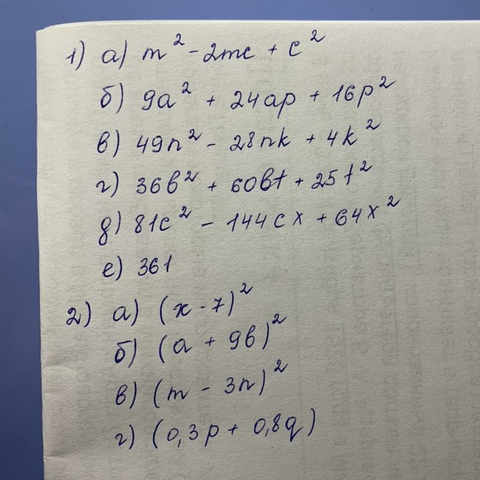 1) а) m² - 2mc + c²
б) 9a² + 24ap + 16p²
в) 49n² - 28nk + 4k²
г) 36b² + 60bt + 25t²
д) 81c² - 144cx + 64x²
е) 361
2) а) (x - 7)²
б) (a + 9b)²
в) (m - 3n)²
г) (0,3p + 0,8q)